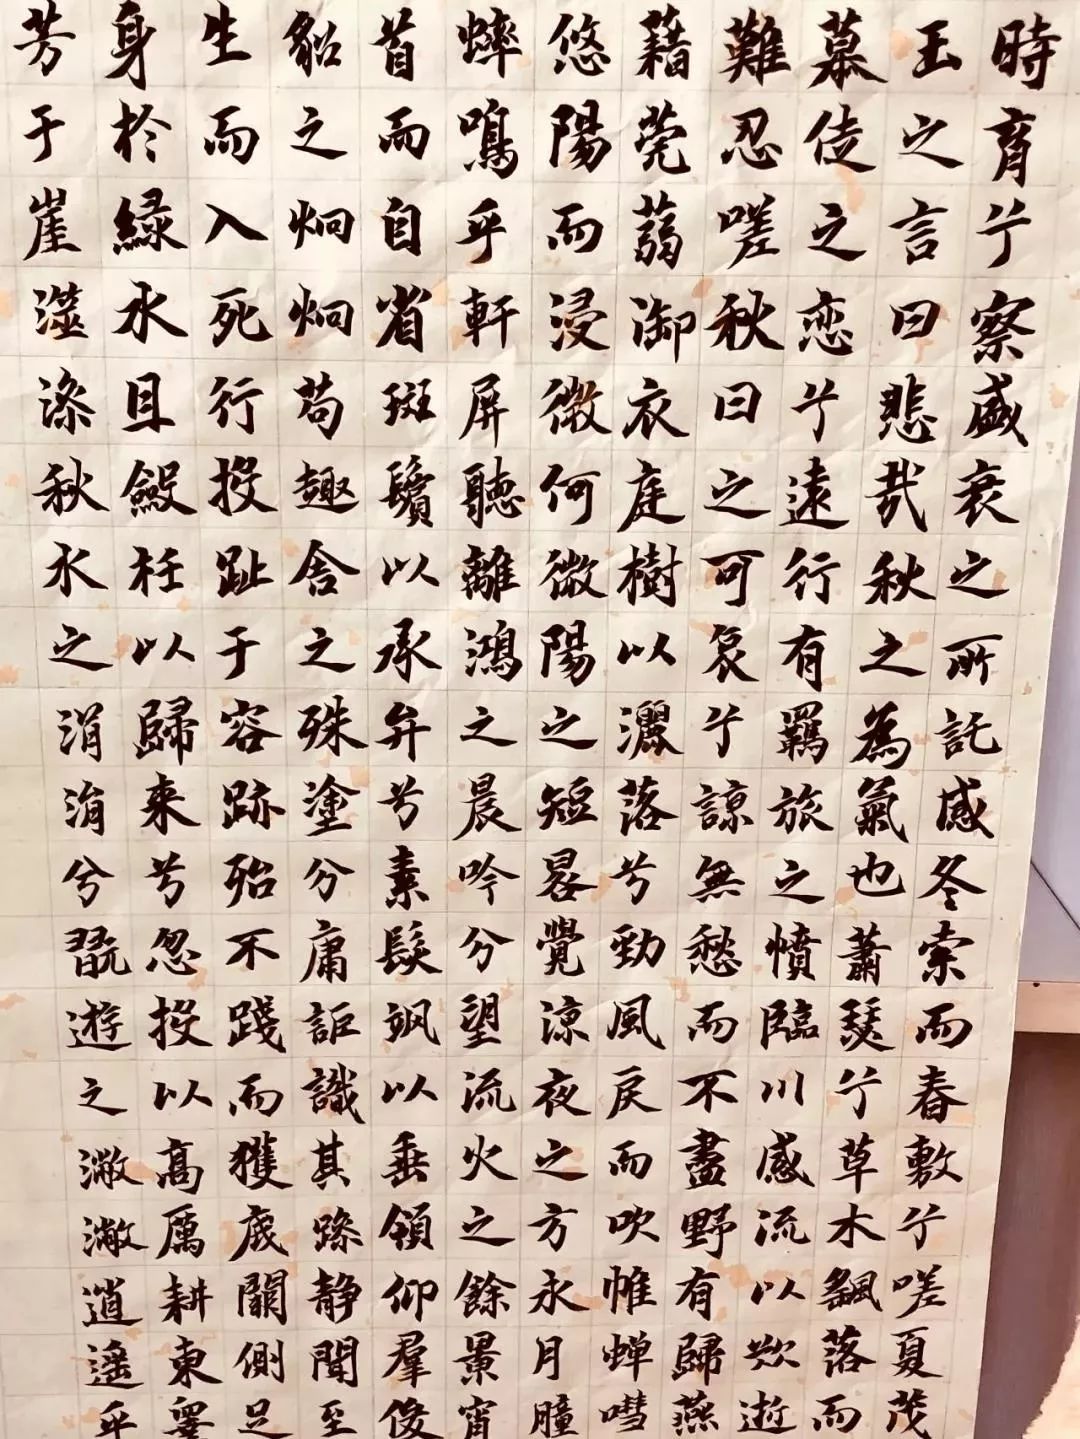 時育兮察盛衰之所託感冬索而春敷兮嗟夏茂
王之言曰悲哉秋之為氣也蕭瑟兮草木飄落而
慕徒之恋兮遠行有羈旅之憤臨川感流以歎逝
難忍嗟秋日之可哀兮諒無愁而不盡野有歸燕
藉莞蒻御衣庭樹以灑落兮勁風戾而吹帷蝉嘒
悠陽而浸微何微陽之短晷覺涼夜之方永月朣
蟀鳴乎軒屏聽離鴻之晨吟兮望流火之餘景宵
首而自省斑鬢以承弁兮素髮颯以垂領仰羣俊
貂之炯炯苟趣舍之殊塗兮庸詎識其躁静聞至
生而入死行投趾于容跡殆不踐而獲底闕側足
身於綠水且斂衽以歸来兮忽投以高厲耕東皋
芳于崖澨澡秋水之涓涓兮翫遊之潎潎逍遥乎